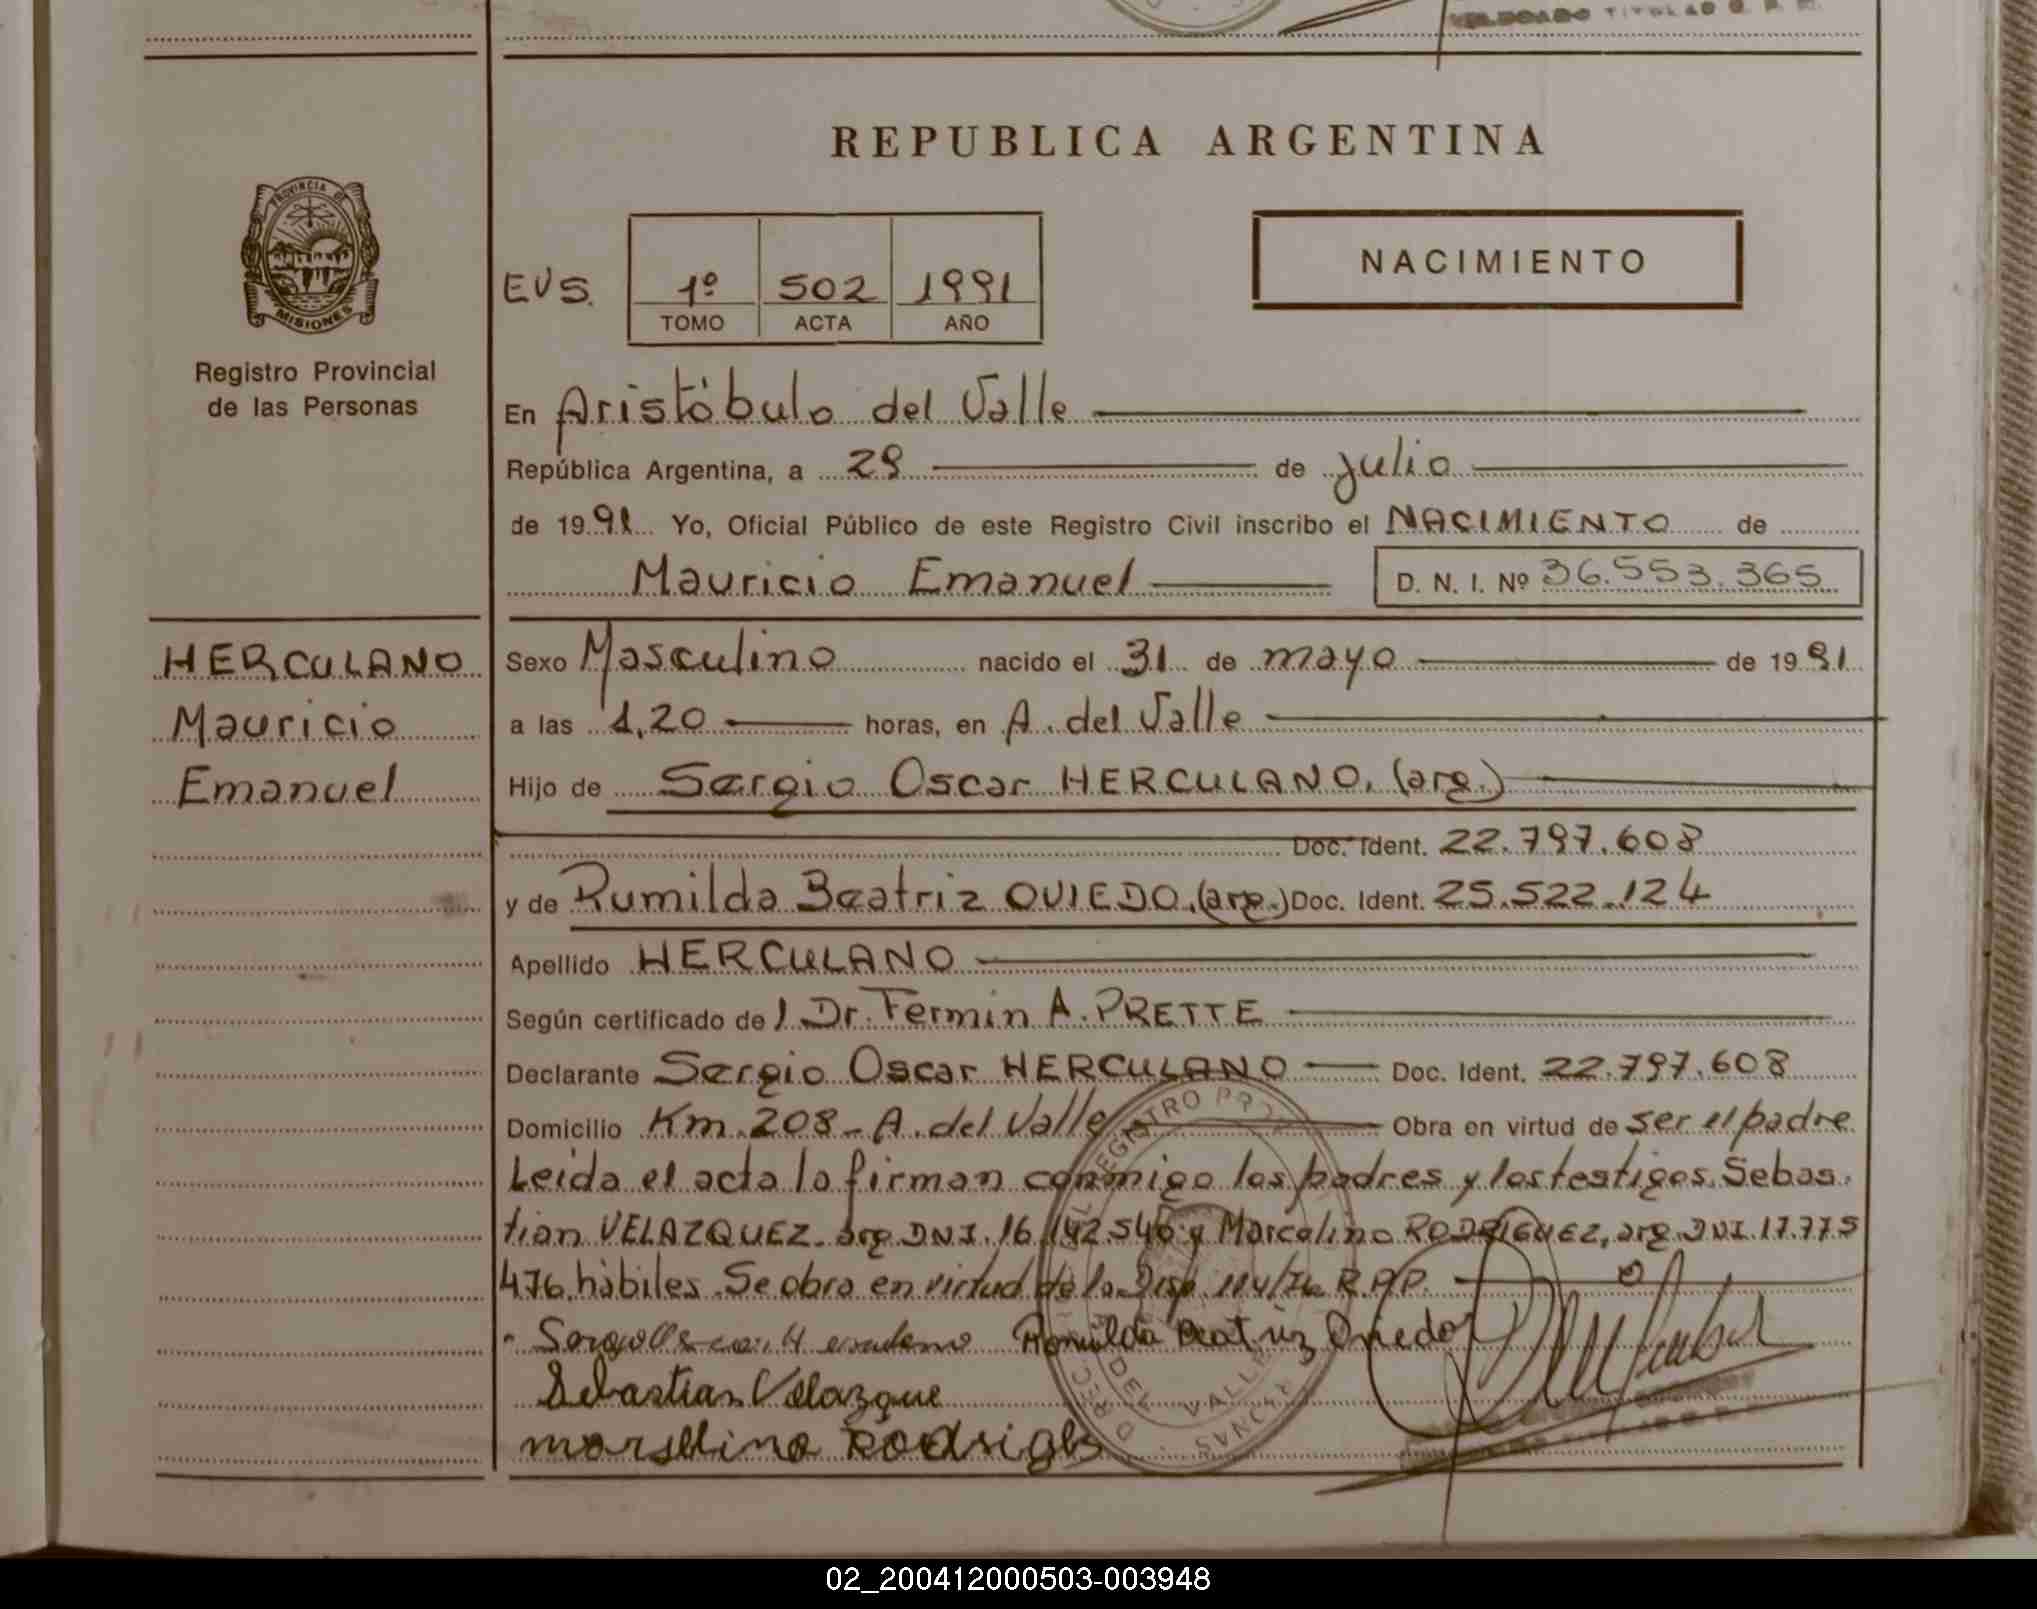 REPUBLICA ARGENTINA
PROVINCIA DE
MISIONES
Registro Provincial
de las Personas
EVS.
1º 502 1991
TOMO ACTA AÑO
NACIMIENTO
En Aristóbulo del Valle
República Argentina, a 29 de julio
de 1991 Yo, Oficial Público de este Registro Civil inscribo el NACIMIENTO de
Mauricio Emanuel D. N. I. Nº 36.553.365
HERCULANO
Mauricio
Emanuel
Sexo Masculino nacido el 31 de mayo de 1991
a las 1,20 horas, en A. del Valle
Hijo de Sergio Oscar HERCULANO, (arg.)
Doc. Ident. 22.797.608
y de Rumilda Beatriz OVIEDO, (arg.) Doc. Ident. 25.522.124
Apellido HERCULANO
Según certificado del Dr. Fermin A. PRETTE
Declarante Sergio Oscar HERCULANO Doc. Ident. 22.797.608
Domicilio Km. 208 - A. del Valle Obra en virtud de ser el padre
Leida el acta la firman conmigo los padres y los testigos Sebas
tian VELAZQUEZ. arg. DNI. 16.142.540 y Marcelino RODRIGUEZ, arg. DNI. 17.775
476. hábiles. Se obra en virtud de la Disp. 114/76 R.P.P.
Romilda Beatriz Oviedo
Sebastian Velazque
marselino Rodrigës
REGISTRO PRO
DEL VALLE
02_200412000503-003948